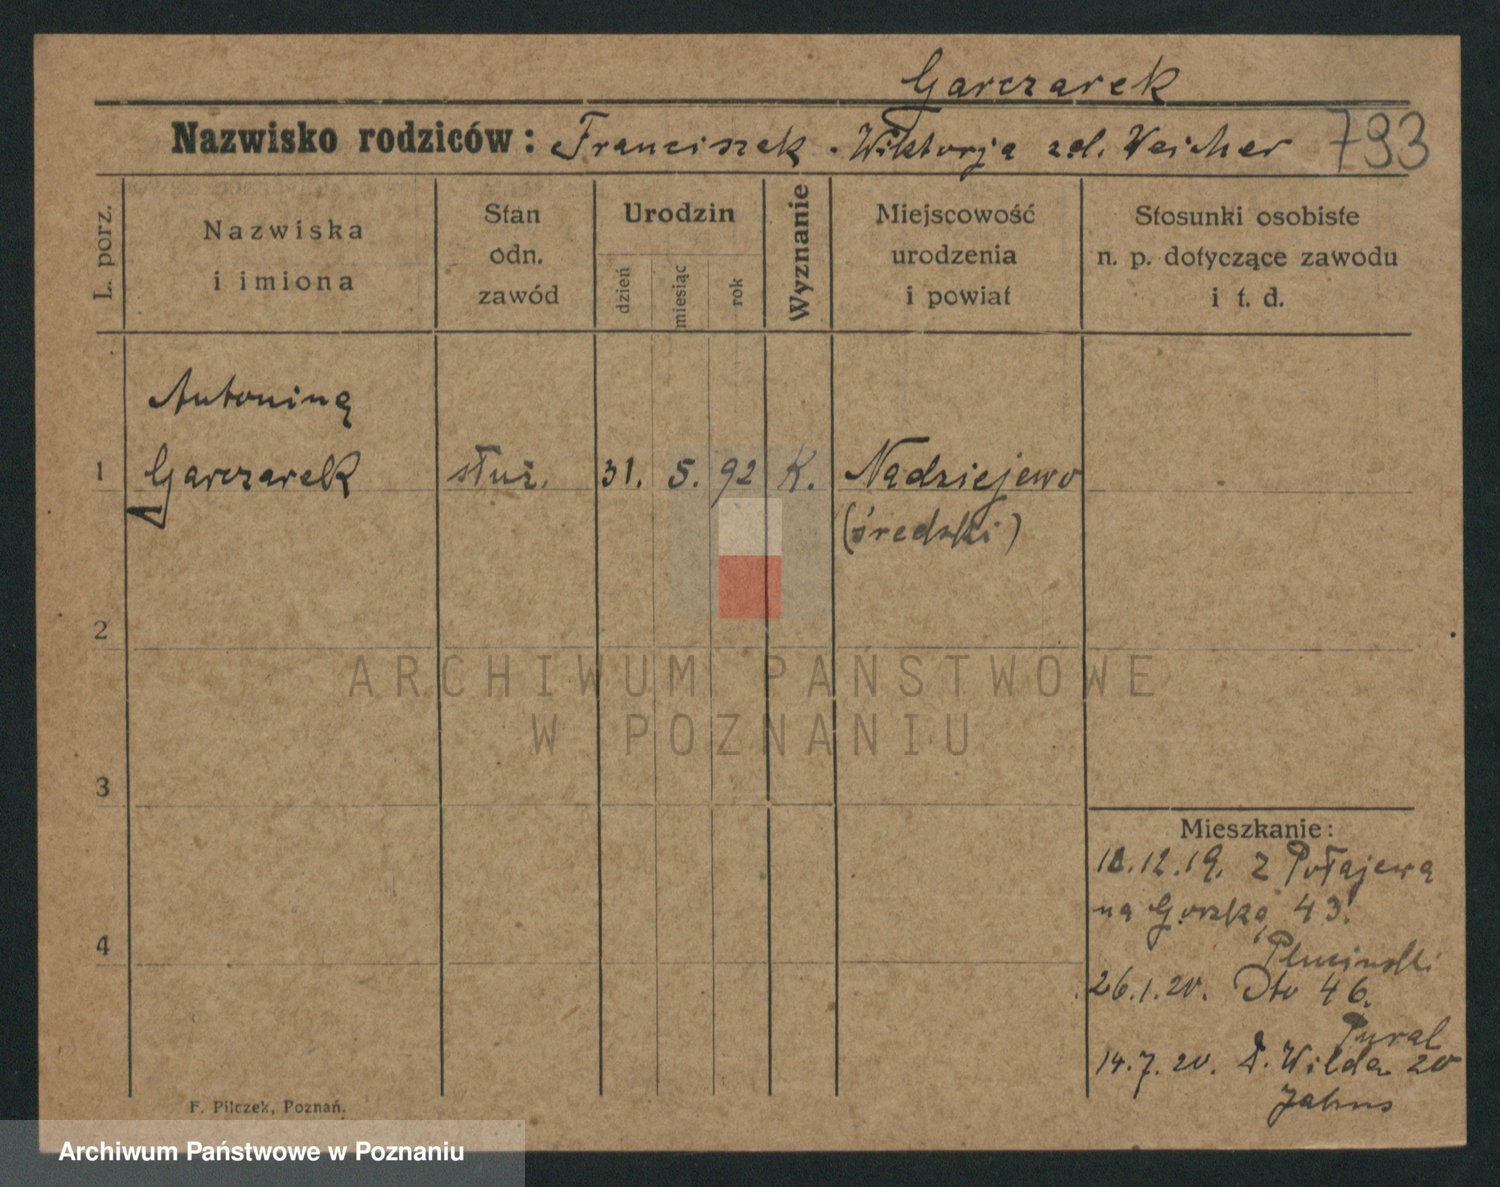 Garczarek
Nazwisko rodziców: Franciszek - Wiktorja zd. Weicher 793
L. porz.
Nazwiska
i imiona
Stan
odn.
zawód
Urodzin
dzień
miesiąc
rok
Wyznanie
Miejscowość
urodzenia
i powiat
Stosunki osobiste
n. p. dotyczące zawodu
i t. d.
Antonina
1 Garczarek służ. 31. 5. 92 K. Nadziejewo
(średzki)
2
ARCHIWUM PAŃSTWOWE
W POZNANIU
3
Mieszkanie:
12.19. z Połajewa
na Gorską 43.
4
Pluciński
26.1.20. Dto 46.
14.7.20. D. Wilda 20
F. Pilczek, Poznań.
Archiwum Państwowe w Poznaniu